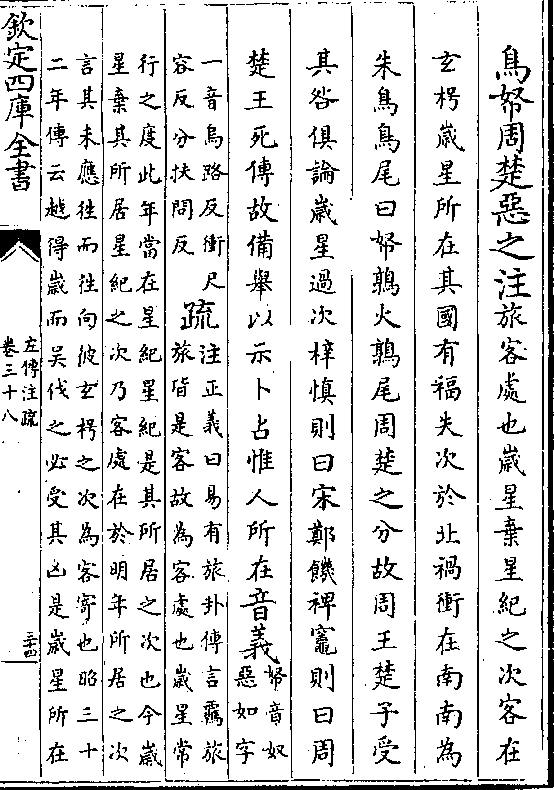 鳥帑周楚惡之注旅客處也歲星棄星紀之次客在
玄枵歲星所在其國有福失次於北禍衝在南南為
朱鳥鳥尾曰帑鶉火鶉尾周楚之分故周王楚子受
其咎俱論歲星過次梓慎則曰宋鄭饑裨竈則曰周
楚王死傳故備舉以示卜占惟人所在音義帑音奴
惡如字
一音烏路反衝尺
容反分扶問反
疏注正義曰易有旅卦傳言羇旅
旅皆是客故為客處也歲星常
行之度此年當在星紀星紀是其所居之次也今歲
星棄其所居星紀之次乃客處在於明年所居之次
言其未應往而往向彼玄枵之次為客寄也昭三十
二年傳云越得歲而吳伐之必受其凶是歲星所在
欽定四庫全書
左傳注疏
卷三十八
三十四